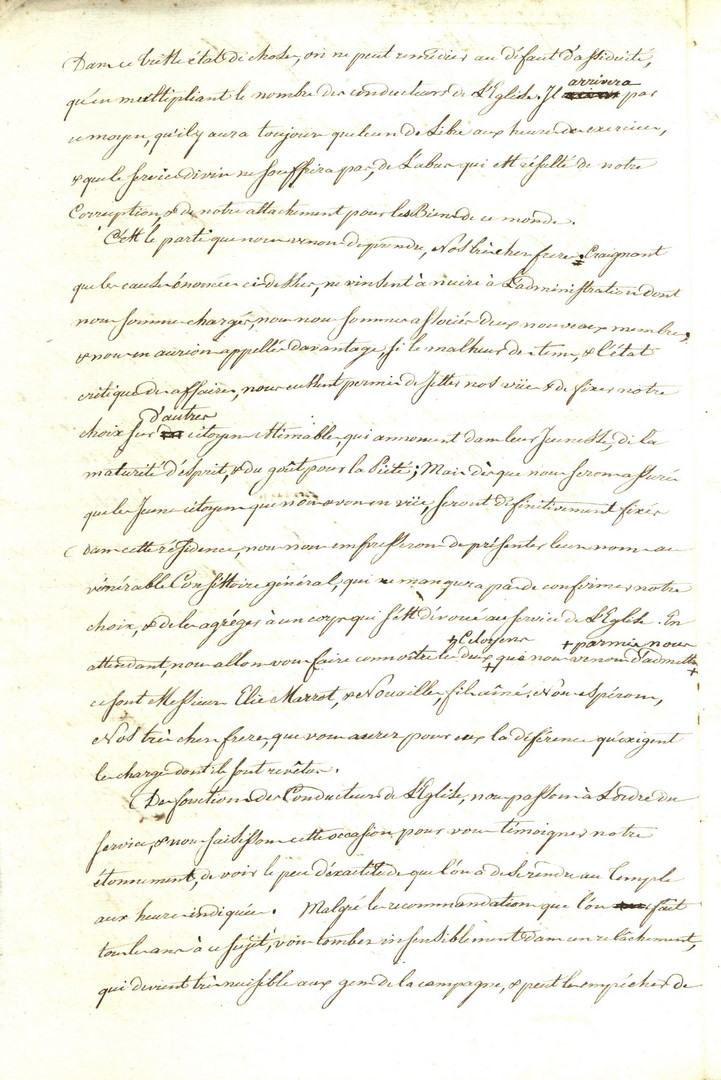 Dans ce triste état de choses, on ne peut remédier au défaut d'assiduité,
qu'en multipliant le nombre des conducteurs de L'Eglise. Il arrivera par
ce moyen, qu'il y aura toujours quelcun de Libre aux heures des exercices,
& que le service divin ne souffrira pas, de L'abus qui est résulté de notre
Corruption, & de notre attachement pour les Biens de ce monde.
C'est le parti que nous venons de prendre, Nos très chers freres. Craignant
que les causes énoncées ci-dessus, ne vinssent à nuire à L'administration dont
nous sommes chargés, nous nous sommes associés deux nouveaux membres,
& nous en aurions appellés davantage, si le malheur des tems, & l'état
critique des affaires, nous eussent permis de Jetter nos vües & de fixer notre
choix sur d'autres citoyens estimables, qui annoncent dans leur Jeunesse, de la
maturité d'esprit, & du goût pour la Piété; Mais dès que nous serons assurés
que les Jeunes citoyens que nous avons en vüe, seront définitivement fixés
dans cette résidence, nous nous empresserons de présenter leurs noms au
vénérable Consistoire général, qui ne manquera pas de confirmer notre
choix, & de les agréger à un corps qui s'est dévoué au service de L'Eglise. En
attendant, nous allons vous faire connoître les deux Citoyens que nous venons d'admettre parmis nous
ce sont Messieurs Elie Marrot, & Nouailles, fils aîné; Nous espérons,
Nos très chers freres, que vous aurez pour eux la déférence qu'exigent
les charges dont ils sont revêtus.
Des fonctions des Conducteurs de L'Eglise, nous passons à L'ordre du
service, & nous saisissons cette occasion pour vous témoigner notre
étonnement, de voir le peu d'éxactitude que l'on a de se rendre au Temple
aux heures indiquées. Malgré les recommandations que l'on fait
tous les ans à ce sujet, vous tombez insensiblement dans un relâchement,
qui devient très nuisible aux gens de la campagne, & peut les empêcher de